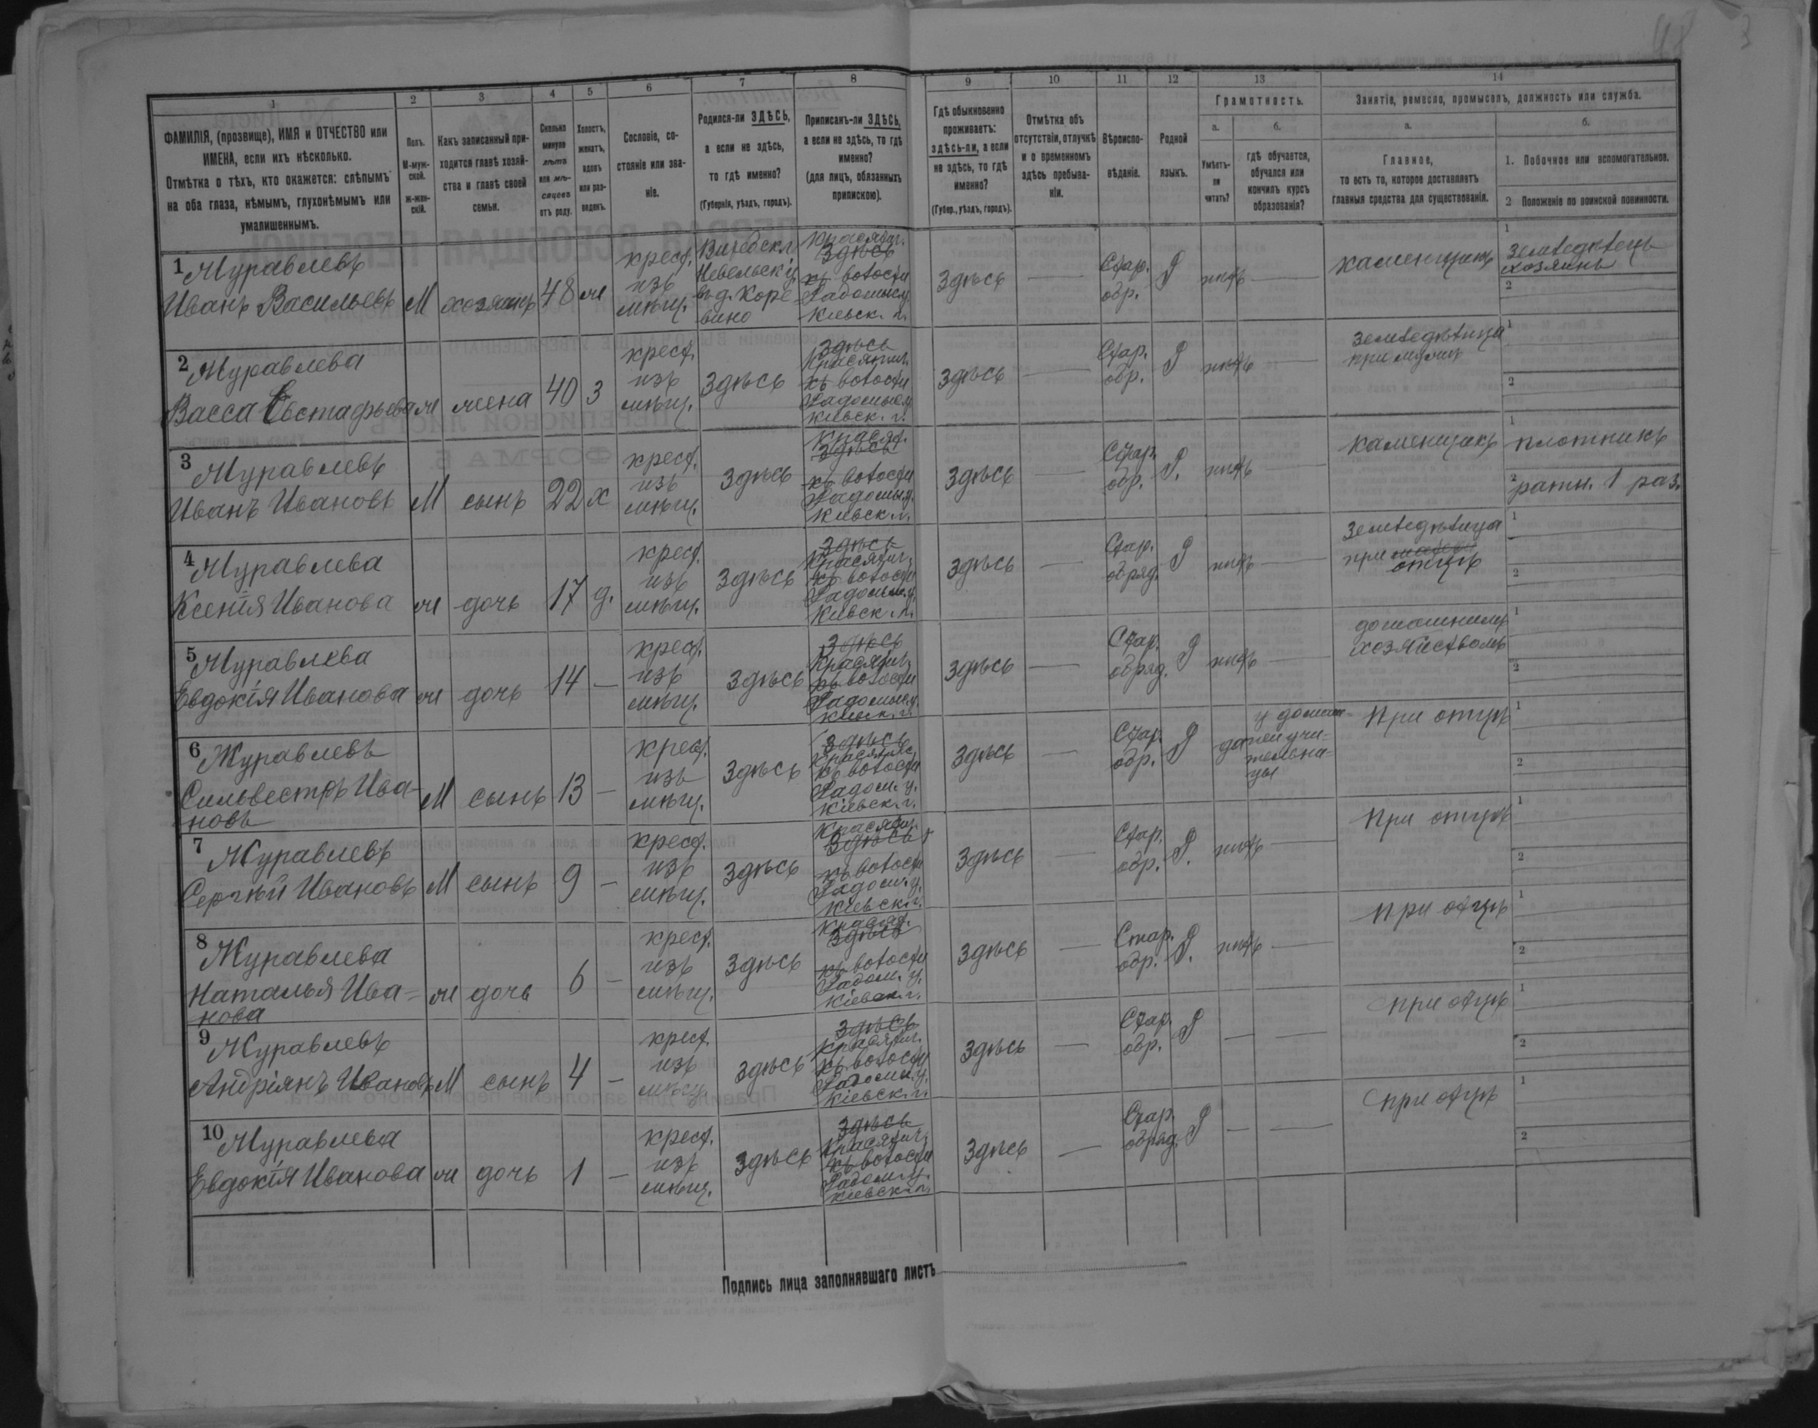 1
2
3
4
5
6
7
8
9
10
11
12
13
14
ФАМИЛІЯ, (прозвище), ИМЯ и ОТЧЕСТВО или
ИМЕНА, если ихъ нѣсколько.
Отмѣтка о тѣхъ, кто окажется: слѣпымъ
на оба глаза, нѣмымъ, глухонѣмымъ или
умалишеннымъ.
Полъ.
М-муж-
ской.
Ж-жен-
скій.
Какъ записанный при-
ходится главѣ хозяй-
ства и главѣ своей
семьи.
Сколько
минуло
лѣтъ
или мѣ-
сяцевъ
отъ роду.
Холостъ,
женатъ,
вдовъ
или раз-
веденъ.
Сословіе, со-
стояніе или зва-
ніе.
Родился-ли ЗДѢСЬ,
а если не здѣсь,
то гдѣ именно?
(Губернія, уѣздъ, городъ).
Приписанъ-ли ЗДѢСЬ,
а если не здѣсь, то гдѣ
именно?
(для лицъ, обязанныхъ
припискою).
Гдѣ обыкновенно
проживаетъ:
здѣсь-ли, а если
не здѣсь, то гдѣ
именно?
(Губер., уѣздъ, городъ).
Отмѣтка объ
отсутствіи, отлучкѣ
и о временномъ
здѣсь пребыва-
ніи.
Вѣроиспо-
вѣданіе.
Родной
языкъ.
Грамотность.
а.
б.
Умѣетъ-
ли
читать?
гдѣ обучается,
обучался или
кончилъ курсъ
образованія?
Занятіе, ремесло, промыселъ, должность или служба.
а.
б.
Главное,
то есть то, которое доставляетъ
главныя средства для существованія.
1. Побочное или вспомогательное.
2 Положеніе по воинской повинности.
1 Журавлевъ
Иванъ Васильевъ М хозяинъ 48 ж
крест.
изъ
мѣщ.
Витебск. г.
Невельскій
въ д. Коре-
вино
Красятич.
здѣсь
къ волости
Радомыс. у.
Кіевск. г.
здѣсь
Стар.
обр.
Р
нѣтъ
каменщикъ
1 земледѣлецъ
хозяинъ
2
2 Журавлева
Васса Евстафьева ж жена 40 З
крест.
изъ
мѣщ.
здѣсь
здѣсь
Красятич.
къ волости
Радомыс. у.
Кіевск. г.
здѣсь
Стар.
обр.
Р
нѣтъ
земледѣлица
при мужѣ
1
2
3 Журавлевъ
Иванъ Ивановъ М сынъ 22 х
крест.
изъ
мѣщ.
здѣсь
Красят.
здѣсь
къ волости
Радомыс. у.
Кіевск. г.
здѣсь
Стар.
обр.
Р.
нѣтъ
каменщикъ
1 плотникъ
2 ратн. 1 раз.
4 Журавлева
Ксенія Иванова ж дочь 17 д.
крест.
изъ
мѣщ.
здѣсь
здѣсь
Красятич.
къ волости
Радомыс. у.
Кіевск. г.
здѣсь
Стар.
обряд.
Р
нѣтъ
земледѣлица
при
отцѣ
1
2
5 Журавлева
Евдокія Иванова ж дочь 14 —
крест.
изъ
мѣщ.
здѣсь
здѣсь
Красятич.
къ волости
Радомыс. у.
Кіевск. г.
здѣсь
Стар.
обряд.
Р
нѣтъ
домашнимъ
хозяйствомъ
1
2
6 Журавлевъ
Сильвестръ Ива-
новъ М сынъ 13 —
крест.
изъ
мѣщ.
здѣсь
здѣсь
Красятич.
къ волости
Радом. у.
Кіевск. г.
здѣсь
Стар.
обр.
Р
да
у домаш-
ней учи-
тельни-
цы
при отцѣ
1
2
7 Журавлевъ
Сергѣй Ивановъ М сынъ 9 —
крест.
изъ
мѣщ.
здѣсь
Красятич.
здѣсь
къ волости
Радом. у.
Кіевск. г.
здѣсь
Стар.
обр.
Р.
нѣтъ
при отцѣ
1
2
8 Журавлева
Наталья Ива-
нова ж дочь 6 —
крест.
изъ
мѣщ.
здѣсь
Красят.
здѣсь
къ волости
Радом. у.
Кіевск. г.
здѣсь
Стар.
обр.
Р.
нѣтъ
при отцѣ
1
2
9 Журавлевъ
Андріянъ Ивановъ М сынъ 4 —
крест.
изъ
мѣщ.
здѣсь
здѣсь
Красятич.
къ волости
Радомыс. у.
Кіевск. г.
здѣсь
Стар.
обр.
Р
при отцѣ
1
2
10 Журавлева
Евдокія Иванова ж дочь 1 —
крест.
изъ
мѣщ.
здѣсь
здѣсь
Красятич.
къ волости
Радом. у.
Кіевск. г.
здѣсь
Стар.
обряд.
Р
при отцѣ
1
2
Подпись лица заполнявшаго листъ